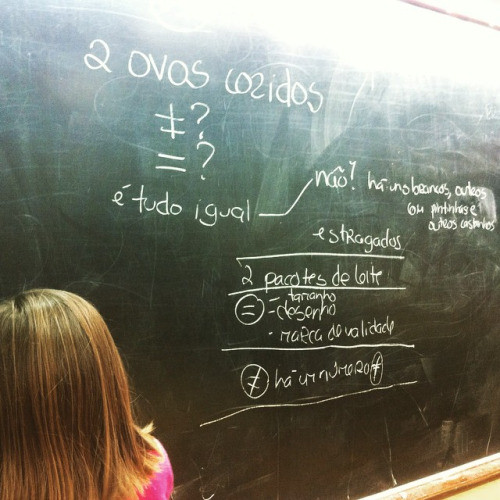 2 ovos cozidos
≠?
= ?
é tudo igual
não! há uns brancos, outros
com pintinhas e
outros castanhos
estragados
2 pacotes de leite
= - tamanho
- desenho
- marca de validade
≠ há um número ≠